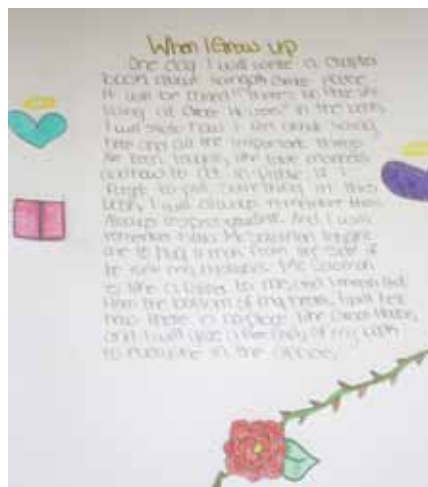 When I Grow up
One day I will write a chapter
book about living at Grace House.
It will be called "There's No Place like
living at Grace House." In the book,
I will state how I felt about living
here and all the important things
I've been taught, the love
and how to act in public. If I
forget to put something in this
book, I will always remember this:
Always respect yourself. And I will
remember how Mr. Solomon taught
me to hug a man from the side if
he is not my husband. Mr. Solomon
is like a father to me, and I mean that
from the bottom of my heart. I will tell
how there is no place like Grace House,
and I will give a free copy of my book
to everyone in the office.